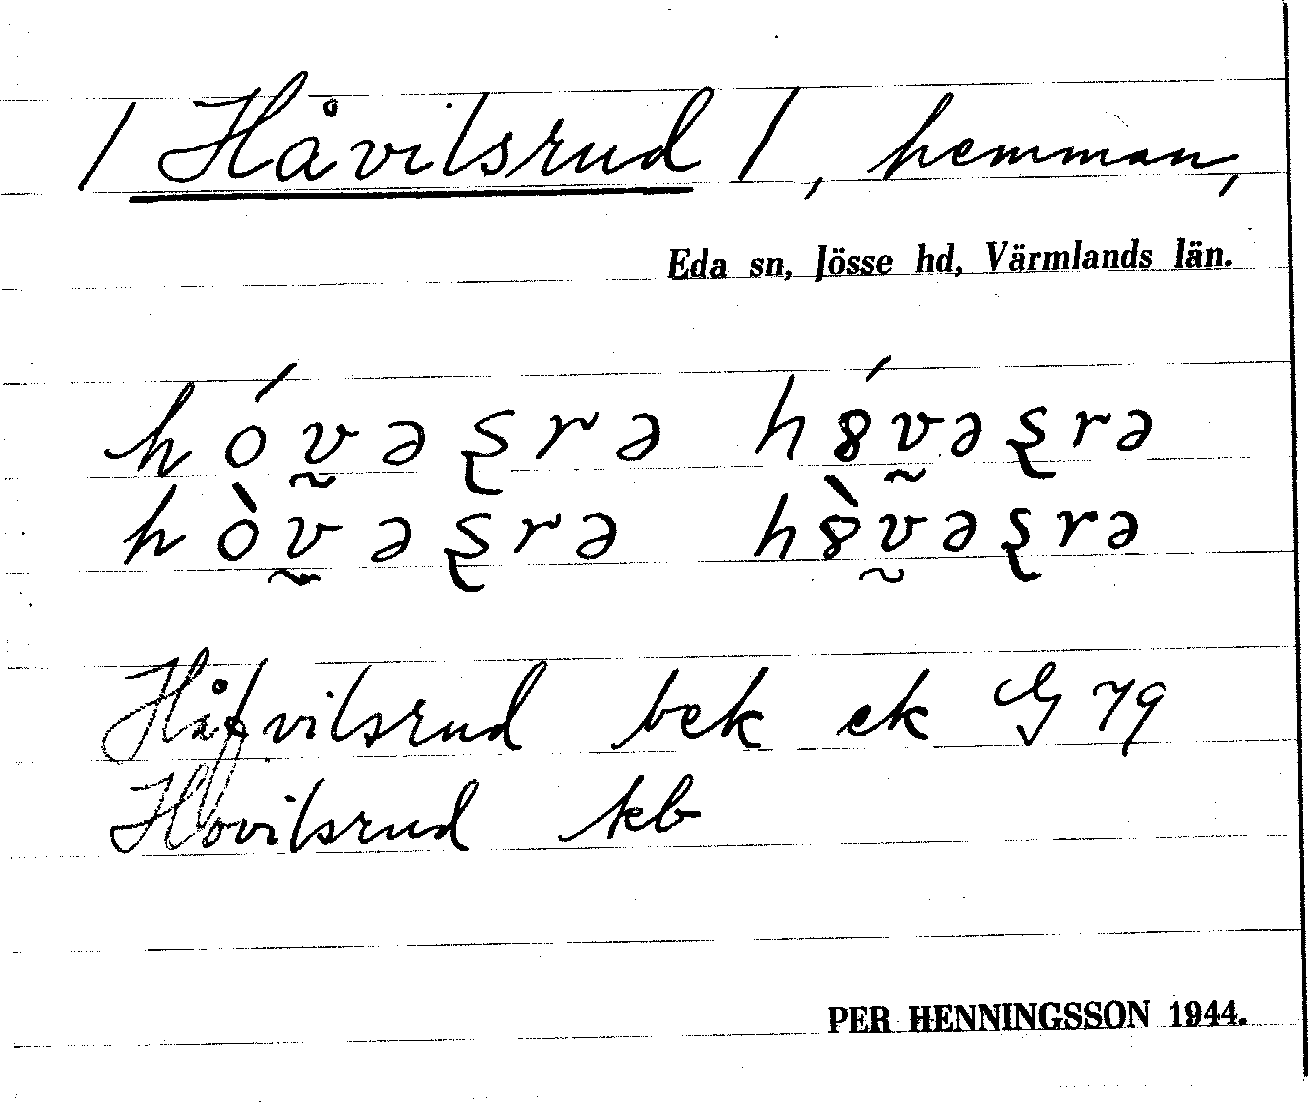 / Håvilsrud /, hemman,
Eda sn, Jösse hd, Värmlands län.
hóv̰əʂrə h8́v̰əʂrə
hòv̰əʂrə h8̀v̰əʂrə
Håfvilsrud bek ek G 79
Hovilsrud kb
PER HENNINGSSON 1944.